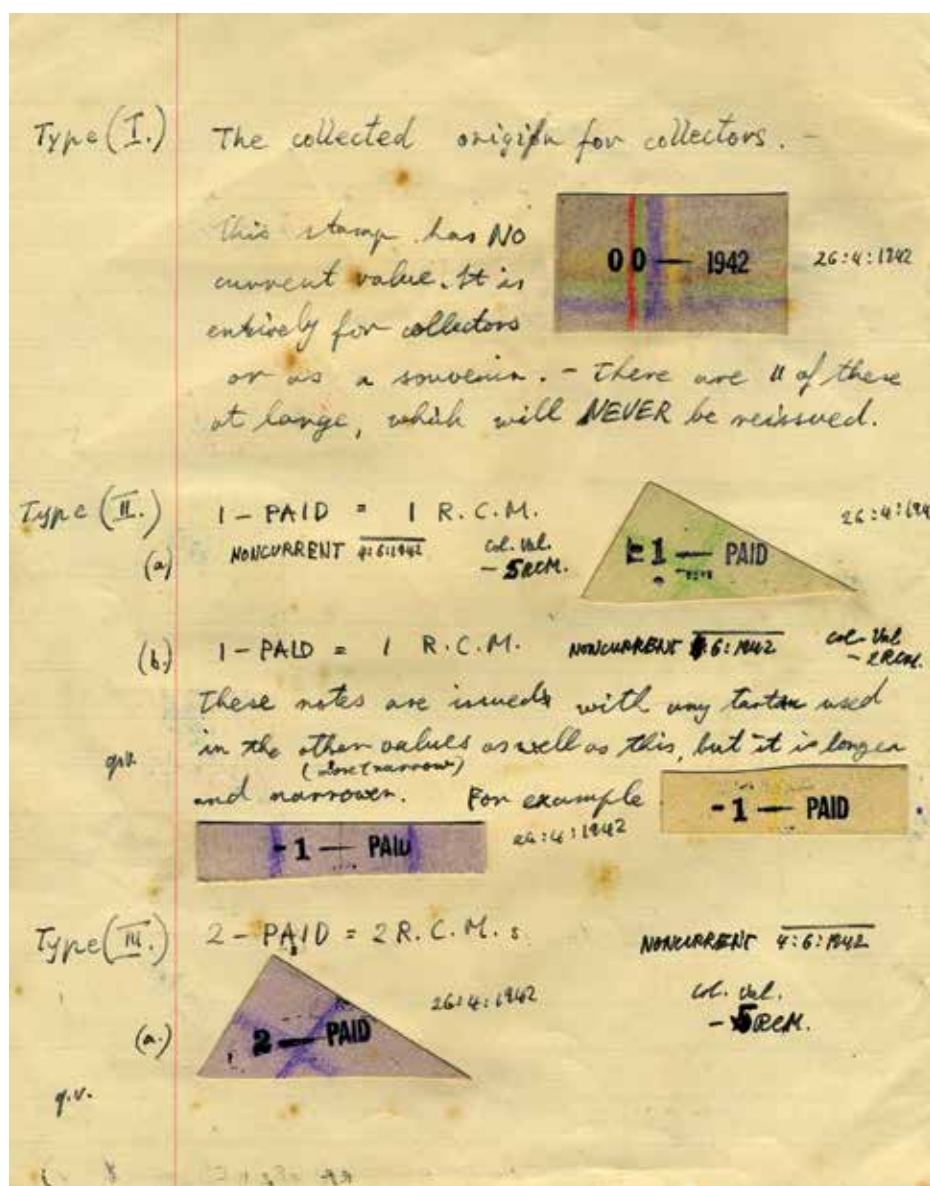 Type (I.) The collected for collectors. -
This stamp has NO
00 — 1942 26:4:1942
current value. It is
entirely for collectors
or as a souvenir. - There are 11 of these
at large, which will NEVER be reissued.
Type (II.) 1 - PAID = 1 R.C.M. 26:4:194
(a) NONCURRENT 4:6:1942 Col. Val.
- 5 RCM.
1 — PAID
(b.) 1 - PAID = 1 R.C.M. NONCURRENT 4:6:1942 Col. Val
- 2 RCM.
These notes are issued with any tartan used
q.v. in the other values as well as this, but it is longer
(narrow)
and narrower. For example
-1 — PAID
26:4:1942
-1 — PAID
Type (III.) 2 - PAID = 2 R.C.M.s NONCURRENT 4:6:1942
26:4:1942 Col. Val.
- 5 RCM.
(a.) 2 — PAID
q.v.